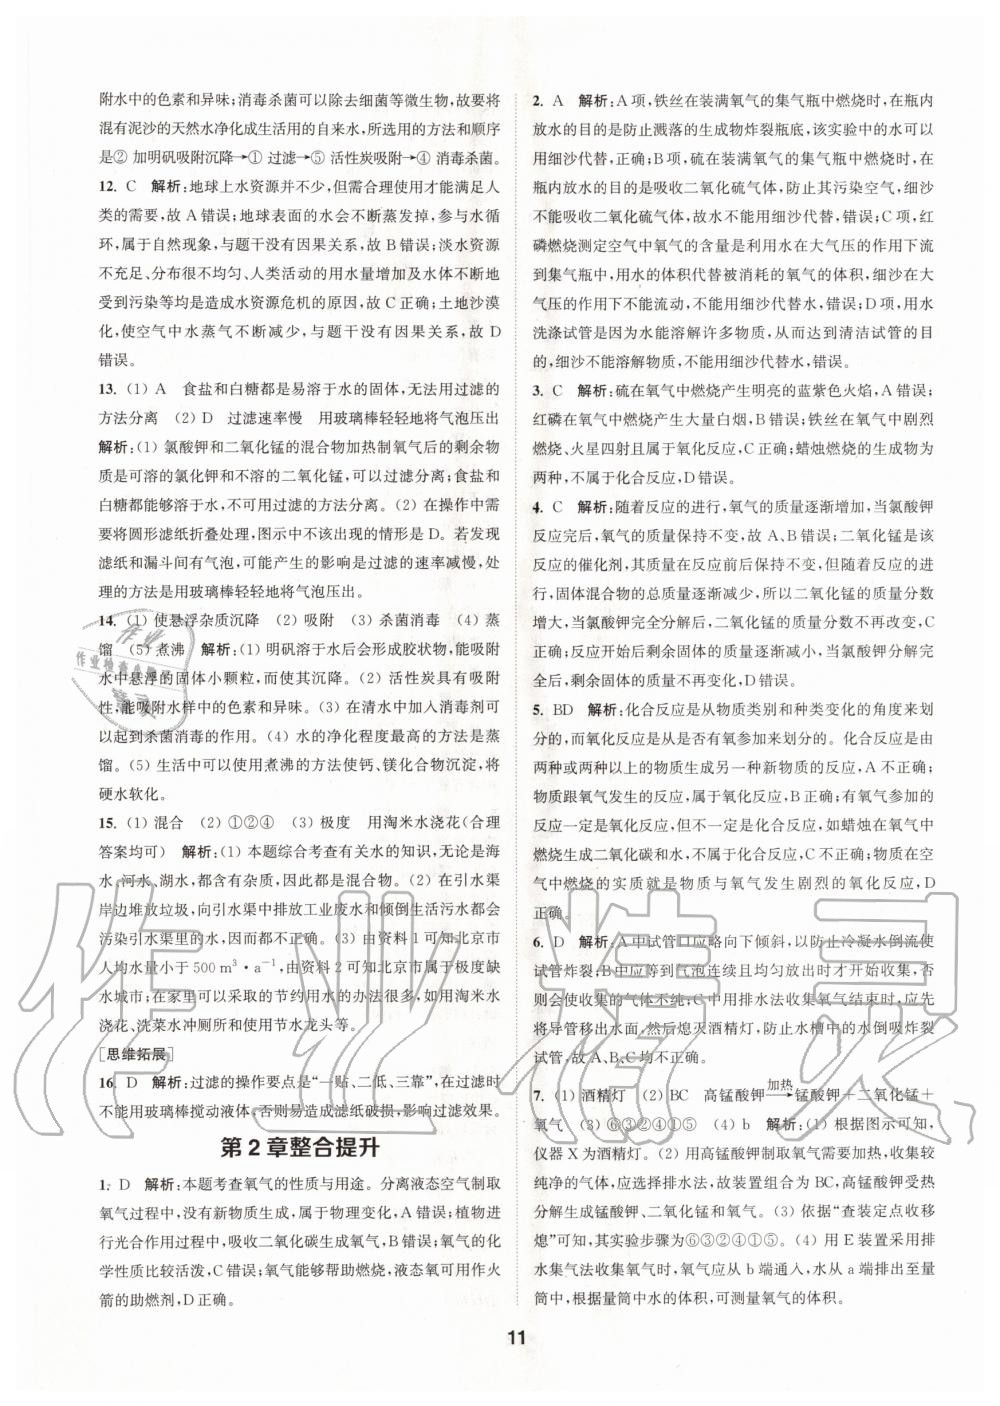 附水中的色素和异味;消毒杀菌可以除去细菌等微生物,故要将
混有泥沙的天然水净化成生活用的自来水,所选用的方法和顺序
是② 加明矾吸附沉降→① 过滤→⑤ 活性炭吸附→④ 消毒杀菌。
12. C 解析:地球上水资源并不少,但需合理使用才能满足人
类的需要,故 A 错误;地球表面的水会不断蒸发掉,参与水循
环,属于自然现象,与题干没有因果关系,故 B 错误;淡水资源
不充足、分布很不均匀、人类活动的用水量增加及水体不断地
受到污染等均是造成水资源危机的原因,故 C 正确;土地沙漠
化,使空气中水蒸气不断减少,与题干没有因果关系,故 D
错误。
13. (1) A 食盐和白糖都是易溶于水的固体,无法用过滤的
方法分离 (2) D 过滤速率慢 用玻璃棒轻轻地将气泡压出
解析:(1) 氯酸钾和二氧化锰的混合物加热制氧气后的剩余物
质是可溶的氯化钾和不溶的二氧化锰,可以过滤分离;食盐和
白糖都能够溶于水,不可用过滤的方法分离。(2) 在操作中需
要将圆形滤纸折叠处理,图示中不该出现的情形是 D。若发现
滤纸和漏斗间有气泡,可能产生的影响是过滤的速率减慢,处
理的方法是用玻璃棒轻轻地将气泡压出。
14. (1) 使悬浮杂质沉降 (2) 吸附 (3) 杀菌消毒 (4) 蒸
馏 (5) 煮沸 解析:(1) 明矾溶于水后会形成胶状物,能吸附
水中悬浮的固体小颗粒,而使其沉降。(2) 活性炭具有吸附
性,能吸附水样中的色素和异味。(3) 在清水中加入消毒剂可
以起到杀菌消毒的作用。(4) 水的净化程度最高的方法是蒸
馏。(5) 生活中可以使用煮沸的方法使钙、镁化合物沉淀,将
硬水软化。
15. (1) 混合 (2) ①②④ (3) 极度 用淘米水浇花(合理
答案均可) 解析:(1) 本题综合考查有关水的知识,无论是海
水、河水、湖水,都含有杂质,因此都是混合物。(2) 在引水渠
岸边堆放垃圾,向引水渠中排放工业废水和倾倒生活污水都会
污染引水渠里的水,因此不可行。(3) 由资料 1 可知北京市
人均水量小于 500 m³·a⁻¹,由资料 2 可知北京市属于极度缺
水城市;在家里可以采取的节约用水的办法很多,如用淘米水
浇花、洗菜水冲厕所和使用节水龙头等。
[思维拓展]
16. D 解析:过滤的操作要点是“一贴、二低、三靠”,在过滤时
不能用玻璃棒搅动液体,否则易造成滤纸破损,影响过滤效果。
第 2 章整合提升
1. D 解析:本题考查氧气的性质与用途。分离液态空气制取
氧气过程中,没有新物质生成,属于物理变化,A 错误;植物进
行光合作用过程中,吸收二氧化碳生成氧气,B 错误;氧气的化
学性质比较活泼,C 错误;氧气能够帮助燃烧,液态氧可用作火
箭的助燃剂,D 正确。
2. A 解析:A 项,铁丝在装满氧气的集气瓶中燃烧时,在瓶内
放水的目的是防止溅落的生成物炸裂瓶底,该实验中的水可以
用细沙代替,正确;B 项,硫在装满氧气的集气瓶中燃烧时,在
瓶内放水的目的是吸收二氧化硫气体,防止其污染空气,细沙
不能吸收二氧化硫气体,故水不能用细沙代替,错误;C 项,红
磷燃烧测定空气中氧气的含量是利用水在大气压的作用下流
到集气瓶中,用水的体积代替被消耗的氧气的体积,细沙在大
气压的作用下不能流动,不能用细沙代替水,错误;D 项,用水
洗涤试管是因为水能溶解许多物质,从而达到清洁试管的目
的,细沙不能溶解物质,不能用细沙代替水,错误。
3. C 解析:硫在氧气中燃烧产生明亮的蓝紫色火焰,A 错误;
红磷在氧气中燃烧产生大量白烟,B 错误;铁丝在氧气中剧烈
燃烧、火星四射且属于氧化反应,C 正确;蜡烛燃烧的生成物为
两种,不属于化合反应,D 错误。
4. C 解析:随着反应的进行,氧气的质量逐渐增加,当氯酸钾
反应完后,氧气的质量保持不变,故 A、B 错误;二氧化锰是该
反应的催化剂,其质量在反应前后保持不变,但随着反应的进
行,固体混合物的总质量逐渐减少,所以二氧化锰的质量分数
增大,当氯酸钾完全分解后,二氧化锰的质量分数不再改变,C
正确;反应后剩余固体的质量逐渐减小,当氯酸钾完全反应
后,剩余固体的质量不再变化,D 错误。
5. BD 解析:化合反应是从物质类别和种类变化的角度来划
分的,而氧化反应是从另一个角度来划分的。化合反应是由
两种或两种以上的物质生成另一种新物质的反应,A 不正确;
物质跟氧气发生的反应,属于氧化反应,B 正确;有氧气参加
的反应一定是氧化反应,但不一定是化合反应,如蜡烛在氧气中
燃烧生成二氧化碳和水,不属于化合反应,C 不正确;物质在空
气中燃烧的实质就是物质与氧气发生剧烈的氧化反应,D
正确。
6. D 解析:A 中试管口应略向下倾斜,以防止冷凝水倒流使
试管炸裂;B 中应等到气泡连续且均匀放出时才开始收集,否
则会使收集的气体不纯;C 中用排水法收集氧气结束时,应先
将导管移出水面,然后熄灭酒精灯,防止水槽中的水倒吸炸裂
试管,故 A、B、C 均不正确。
7. (1) 酒精灯 (2) BC 高锰酸钾 加热→ 锰酸钾+二氧化锰+
氧气 (3) ⑥③②④①⑤ (4) b 解析:(1) 根据图示可知,
仪器 X 为酒精灯。(2) 用高锰酸钾制取氧气需要加热,收集较
纯净的气体,应选择排水法,故装置组合为 BC,高锰酸钾受热
分解生成锰酸钾、二氧化锰和氧气。(3) 依据“查装定点收移
熄”可知,其实验步骤为⑥③②④①⑤。(4) 用 E 装置采用排
水集气法收集氧气时,氧气应从 b 端通入,水从 a 端排出至量
筒中,根据量筒中水的体积,可测量氧气的体积。
11
作业精灵